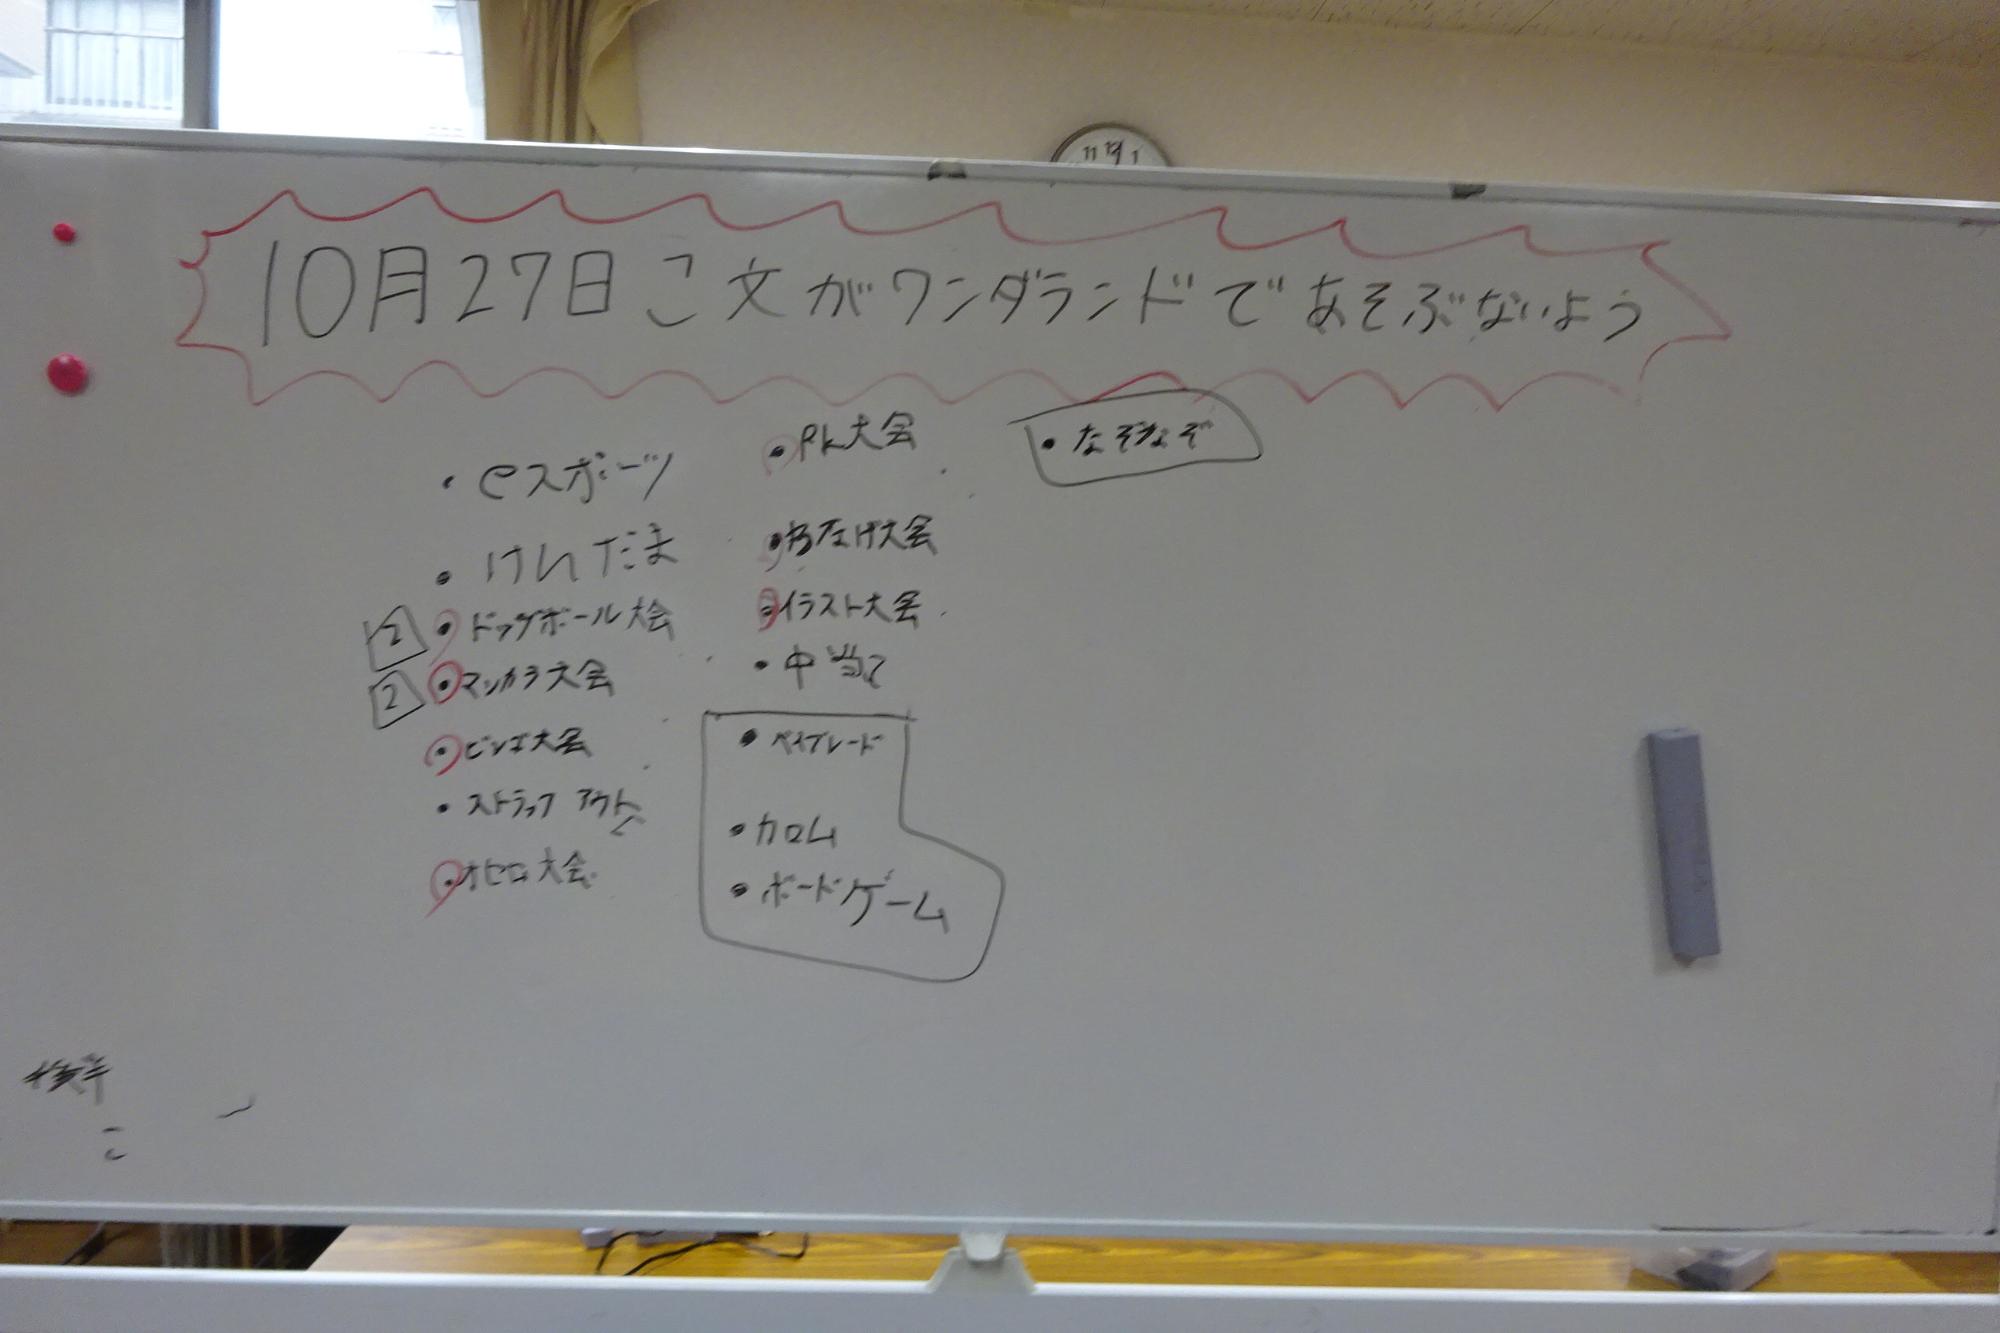 10月27日こ文がワンダランドであそぶないよう
・eスポーツ
・けんだま
2 ・ドッヂボール大会
2 ・マンカラ大会
・ビンゴ大会
・ストラックアウト
・オセロ大会
・PK大会
・わなげ大会
・イラスト大会
・中当て
・ベイブレード
・カロム
・ボードゲーム
・なぞなぞ
後半
こ
11 12 1